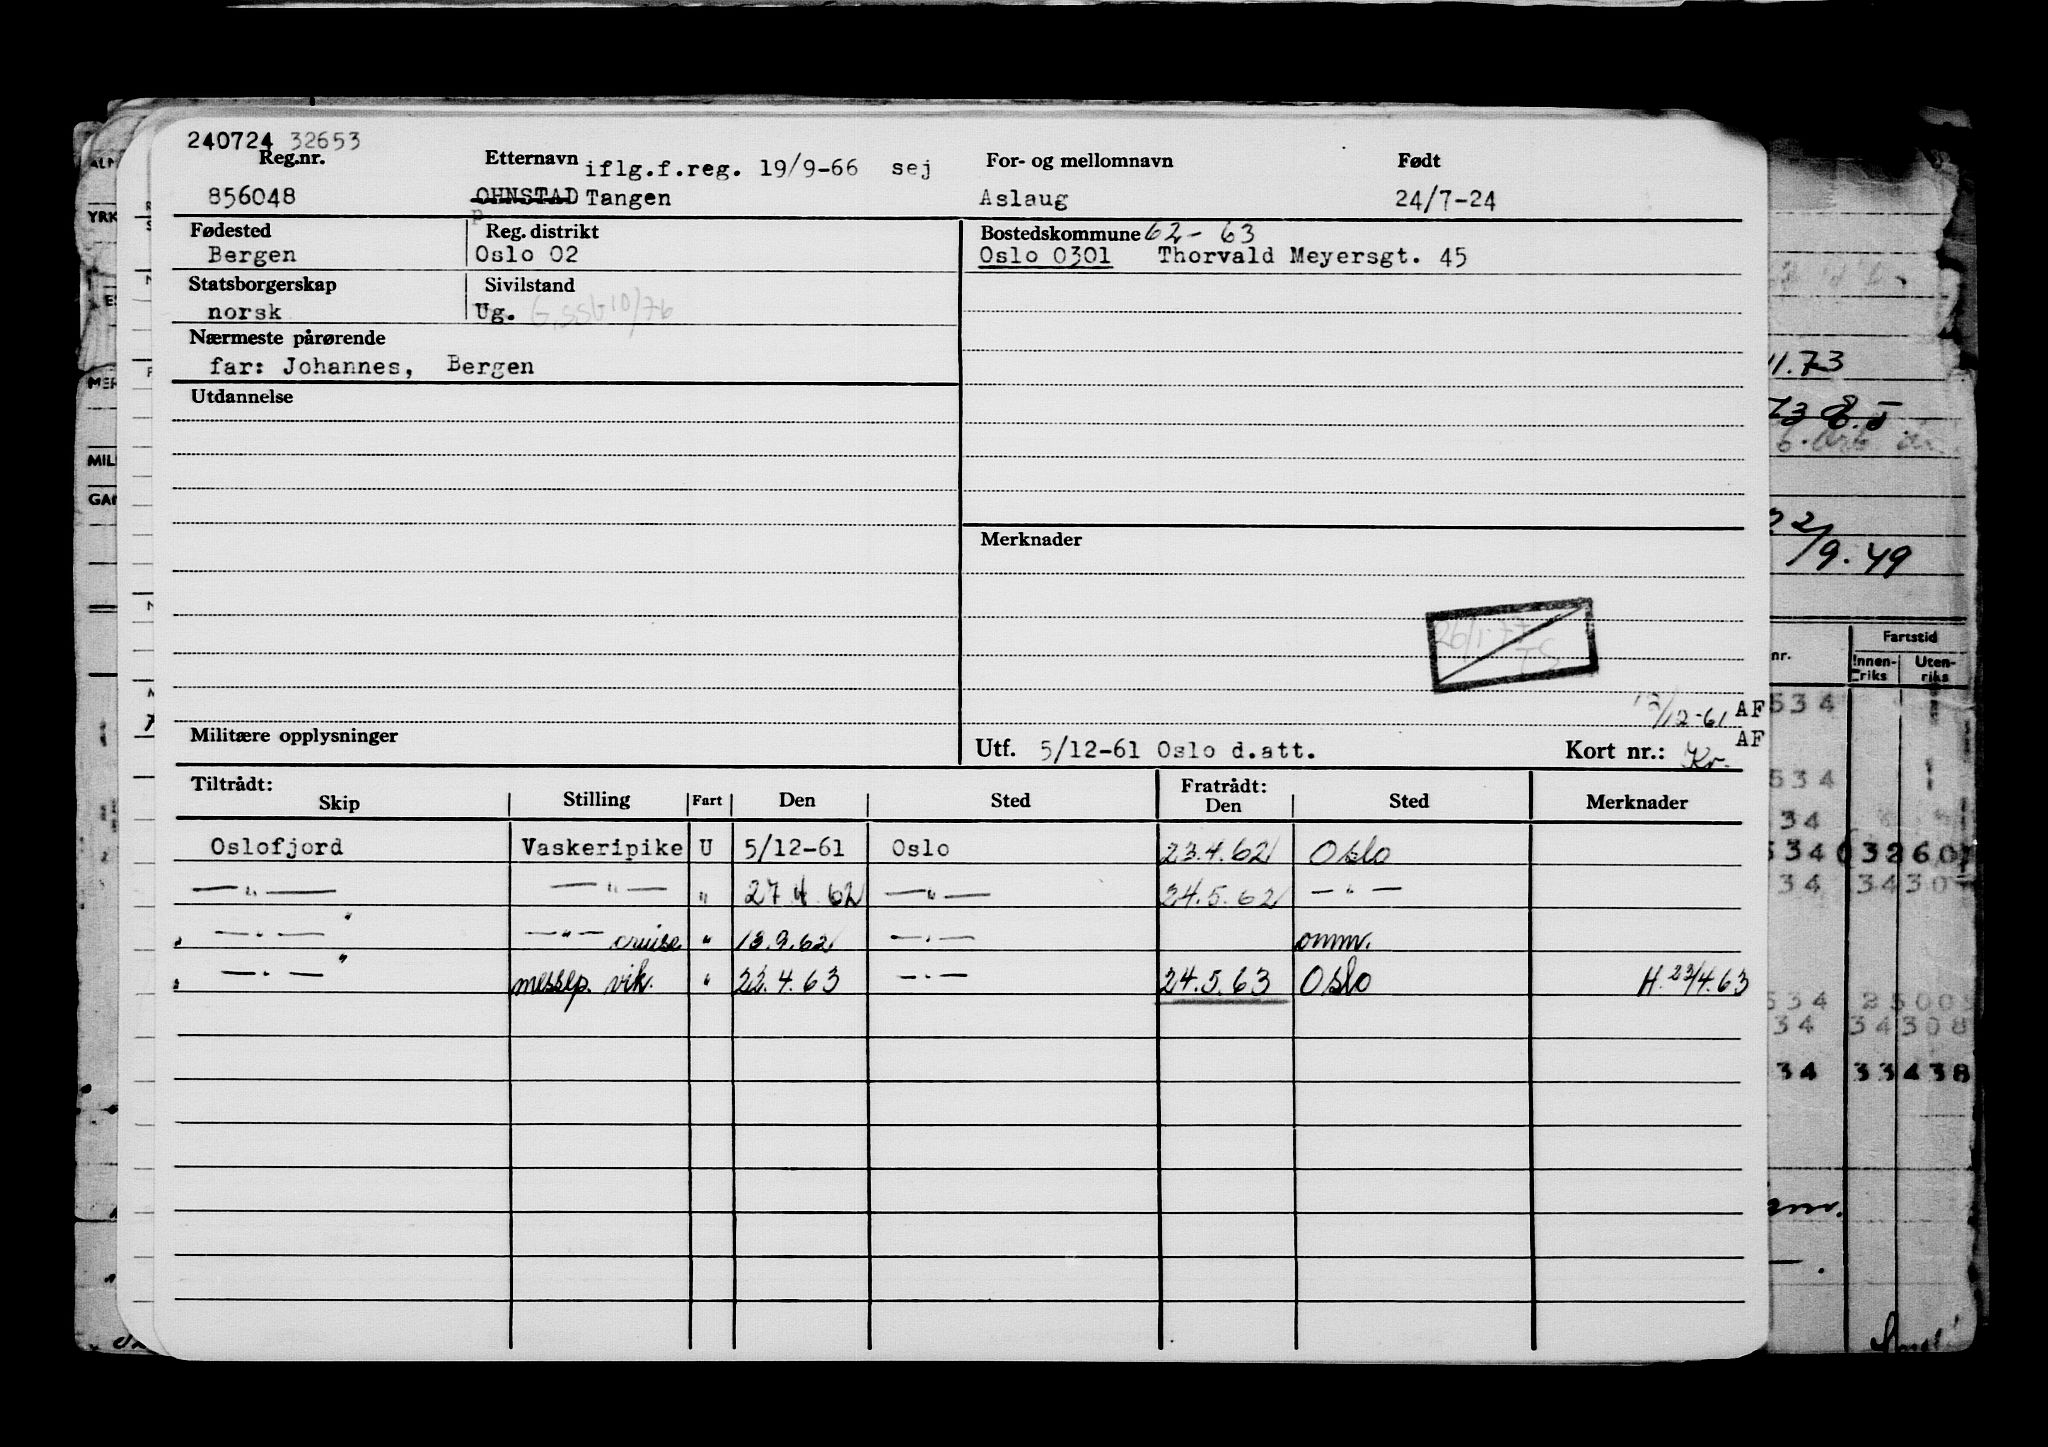 240724 32653
Reg.nr. Etternavn iflg.f.reg. 19/9-66 sej For- og mellomnavn Født
856048 OHNSTAD Tangen Aslaug 24/7-24
Fødested Reg. distrikt Bostedskommune 62- 63
Bergen Oslo 02 Oslo 0301 Thorvald Meyersgt. 45
Statsborgerskap Sivilstand
norsk Ug.
Nærmeste pårørende
far: Johannes, Bergen
Utdannelse
Merknader
12/12-61 AF
Militære opplysninger Utf. 5/12-61 Oslo d.att. Kort nr.: Kr. AF
Tiltrådt: Fratrådt:
Skip Stilling Fart Den Sted Den Sted Merknader
Oslofjord Vaskeripike U 5/12-61 Oslo 23.4.62 Oslo
—"— —"— " 27.4.62 —"— 24.5.62 —"—
—"— —"— cruise " 13.9.62 —"— omm.
—"— messep. vik. " 22.4.63 —"— 24.5.63 Oslo H.23/4.63
YRK
MILI
11.73
2/9.49
nr. Fartstid
Innenriks Utenriks
534
534
34
34
34
34 34308
34 33438